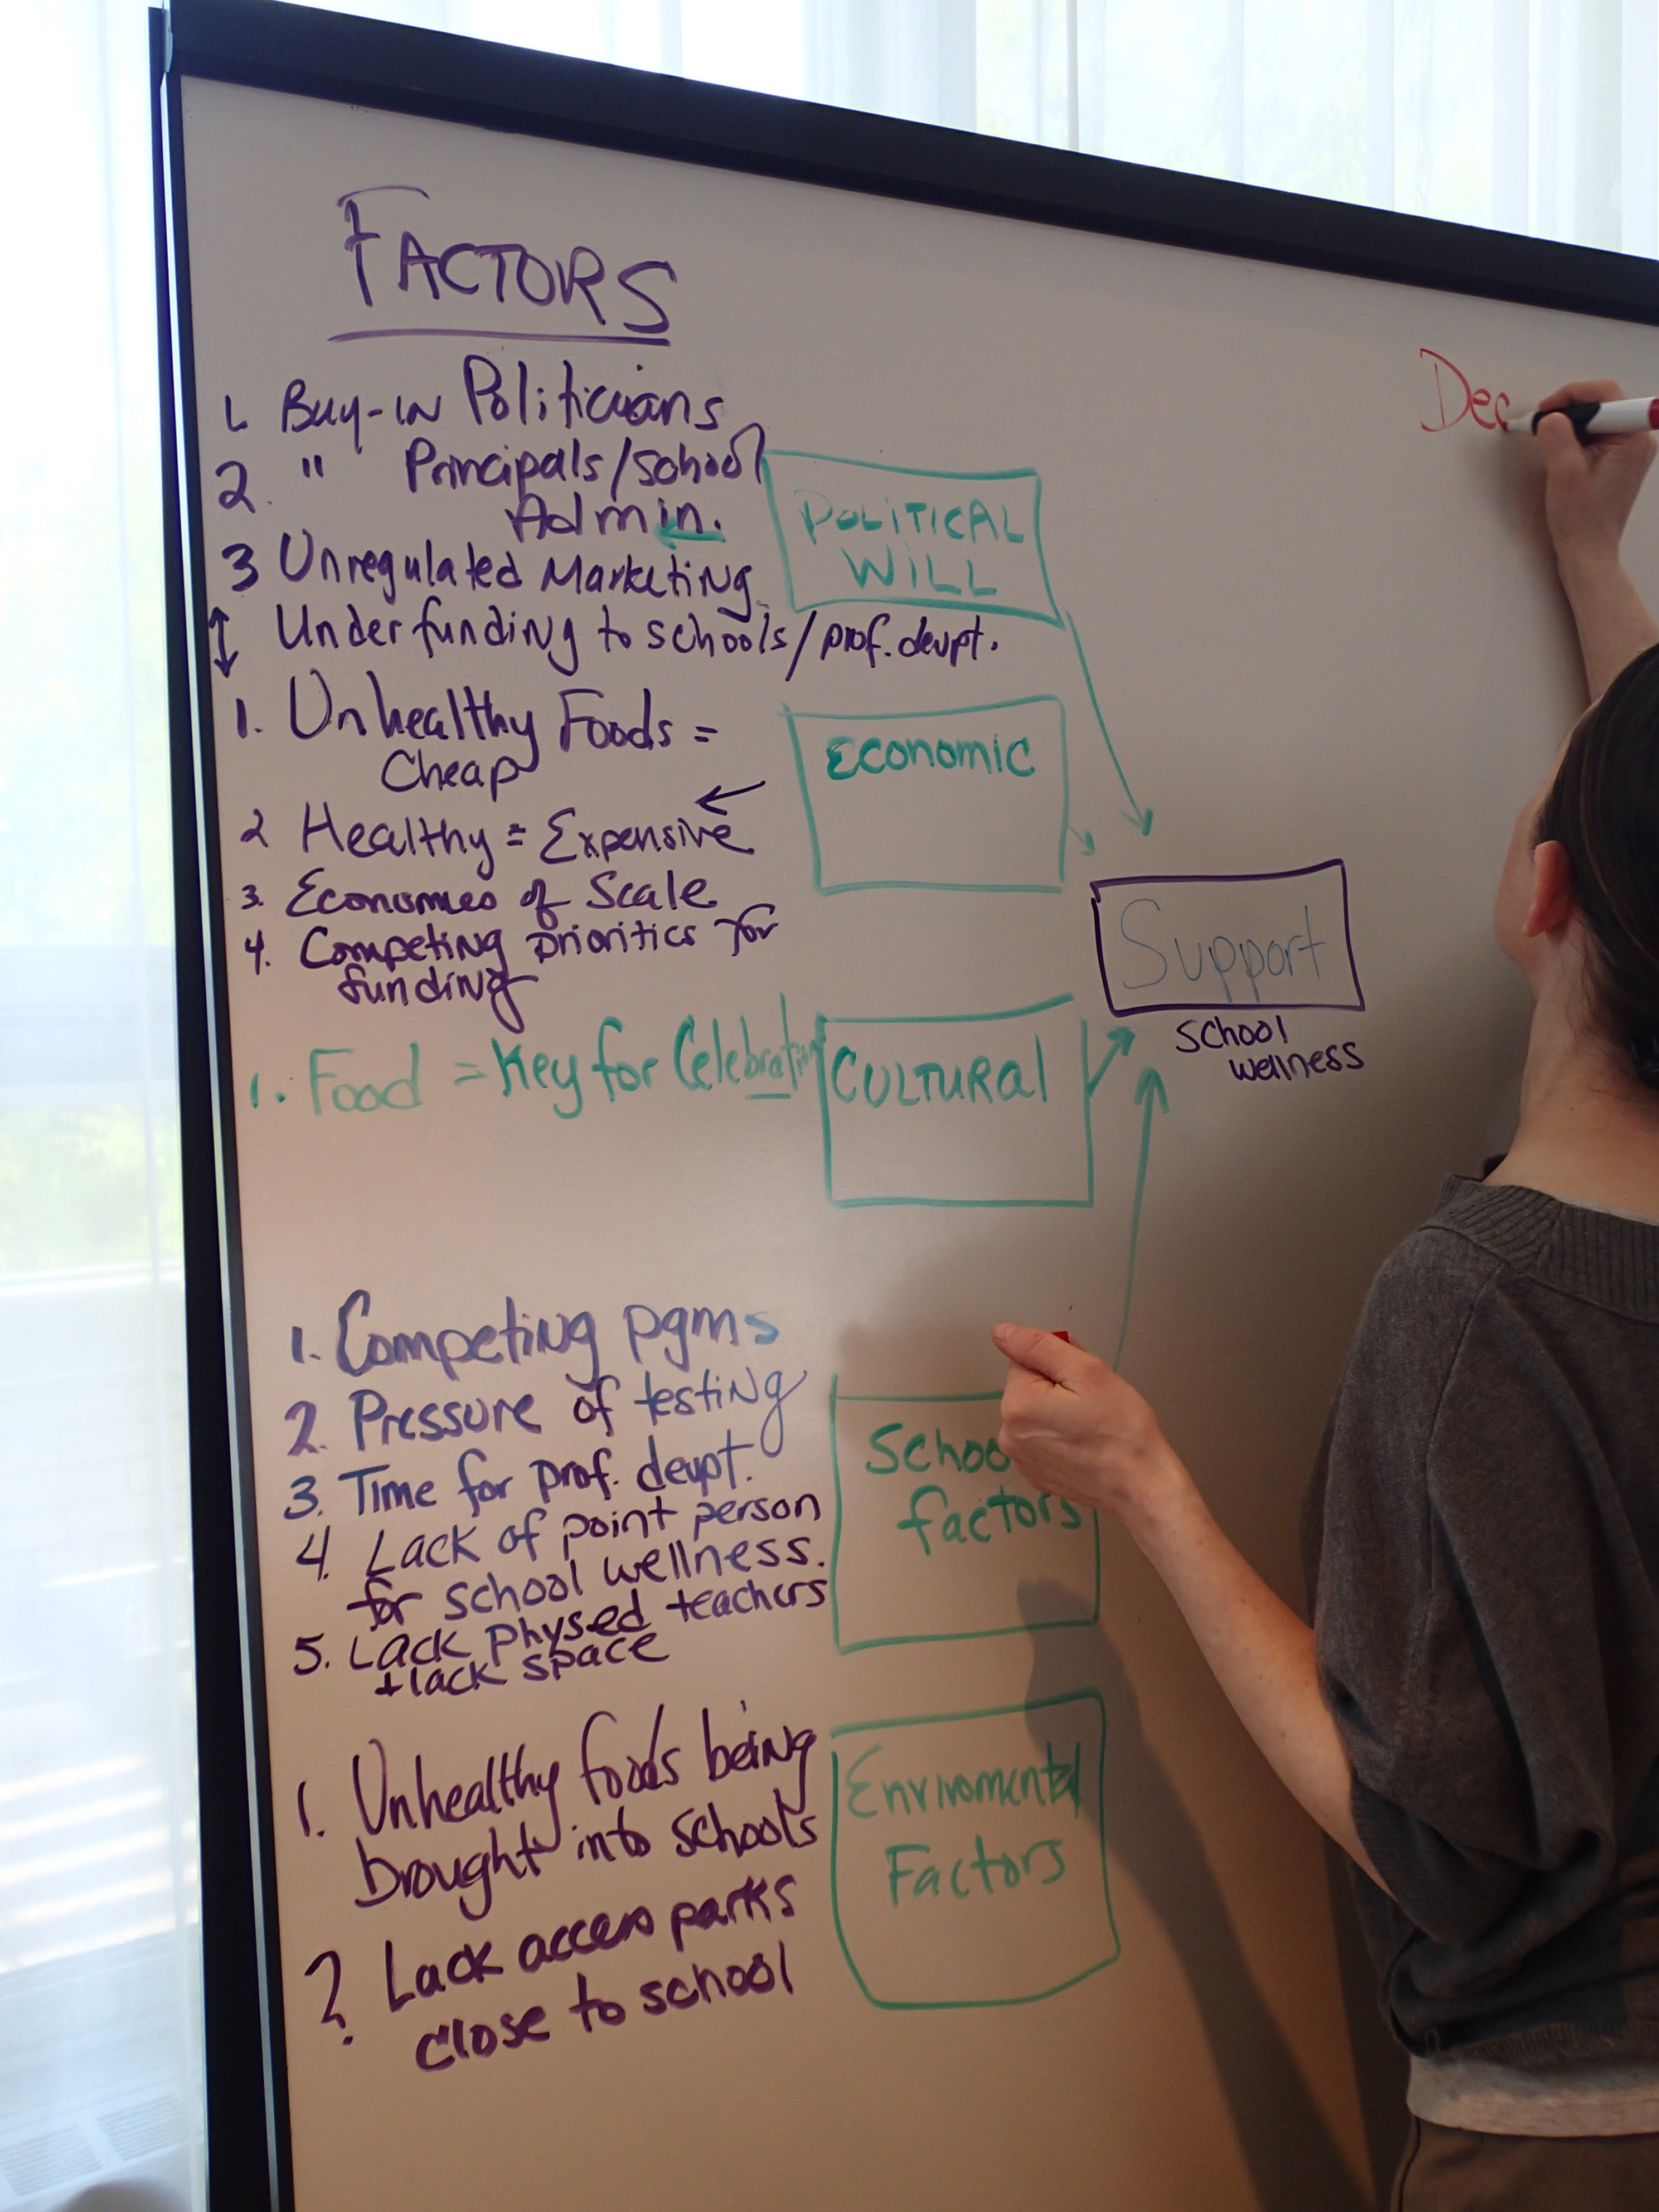 FACTORS
1. Buy-in Politicians
2. " Principals/school
Admin.
3 Unregulated Marketing
Underfunding to schools/prof. devpt.
POLITICAL
WILL
1. Unhealthy Foods =
Cheap
2 Healthy = Expensive
3. Economies of Scale
4. Competing priorities for
funding
ECONOMIC
1. Food = Key for Celebration
CULTURAL
Support
School
wellness
1. Competing pgms
2. Pressure of testing
3. Time for prof. devpt.
4. Lack of point person
for school wellness.
5. Lack physed teachers
+ lack space
Schoo
factors
1. Unhealthy foods being
brought into schools
2. Lack access parks
close to school
Enviromental
Factors
Dec